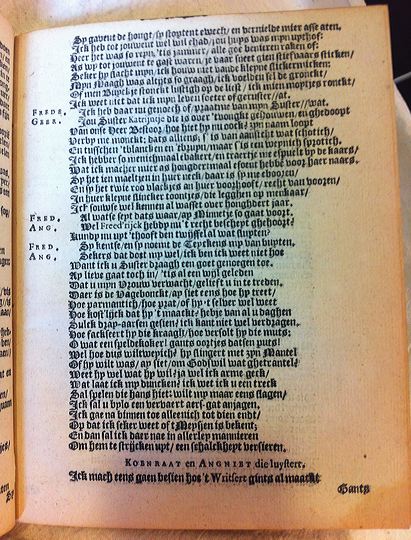 Sy gavent de hongt/ sy stoptent ewech/ en vernielde mier asse aten.
Ick heb tot jouwent wel wil ehad/ ou huys was mijn uythof:
Heer het was so mijn/ 'tis jammer/ alle goe benieren raken of:
As wy tot jouwent te gast waren/ je vaar
Seker hy slacht mijn ick hou niet vande kleyne
Mijn Maagh was altijt so graagh/
Of men stonck lustigh op de liest/ ick mien moytjes ronckt/
Ick weet niet dat ick mijn leven soeter of geruster // at.
FREDE. Ick heb daar nu genoch of/ praatme van mijn Suster // wat.
GEER. Jou Suster Katrijntje die is over 'twonght ghehouwen/ en ghedoopt
Van onse Heer Bestoor/ hoe hiet hy nu oock? zyn naam loopt
Verby me monckt/ dats alliens/ s' is van aansicht wat schotich/
En tusschen 'tblanck en 'tbruyn/ maar s' is een weynich sprotich.
Ick hebber so menichmaal ebakert/ en raertje me espuelt by de kaars/
Wat ick macher mier as hongdertmaal esoent hebbe voor haer naers.
Sy het ien maelschen in hur neck/ daar is sy me eboren/
En sy het twie roo vlackjes an huer voorhooft/ recht van vooren/
In huer kleyne flincker toontjes/ die legghen op menkaar/
Ick souwse wel kennen al wasset over honghdert jaar.
FRED. Al watse seyt dats waar/ ay Mimetje so gaat voort.
ANG. Wel Freed'rijck hebdy nu 't recht bescheyt ghehoort?
Kundy nu upt 'thooft den twijfel al wat stuypen?
FRED. Sy kentse/ en sy noemt de Teyckens my van buyten.
ANG. Sekers dat dost my wel/ ick ben ick weet niet hoe
Want ick u Suster draagh een goet genogen toe.
Ay lieve gaat toch in/ 'tis al een wijl geleden
Dat u mijn Vrouw verwacht/ gelieft u in te treden.
Waer is de Vagebonckt/ ay siet eens hoe hy treet/
Hoe parmantich/ hoe prat/ of hy 't selver wel weet
Hoe kost'lijck dat hy 't maackt? hebje van al u daghen
Sulck dray-aarsen gesien? ick kant niet wel verdragen.
Hoe sackseert hy die kraagh/ hoe versolt hy die muts;
O wat een speldekoker! gants oortjes datsen puts!
Wel hoe dus wiltweyich? hy slingert met zyn Mantel
Of hy wilt was/ ay siet/ om Gods wil wat ghetrantel?
Weet hy wel wat hy wil? ja wel ick arme geck/
Wat laat ick my duncken? ick wet ick u een treck
Sal spelen die hans hiet: wilt my maar eens slagen/
Ick sal u bylo een vervaert aers-gat anjagen.
Ick gae na binnen toe alleenich tot dien eynde/
Op dat ick seker weet of t'Meysen is bekent;
En dan sal ick daar nae in allerley mannieren
Om hem te strijcken uyt/ een schalckheyt versieren.
KOENRAAT en ANGNIET die luystert.
Ick mach eens gaen besien hoe 't Writsert gints al maackt
Gants